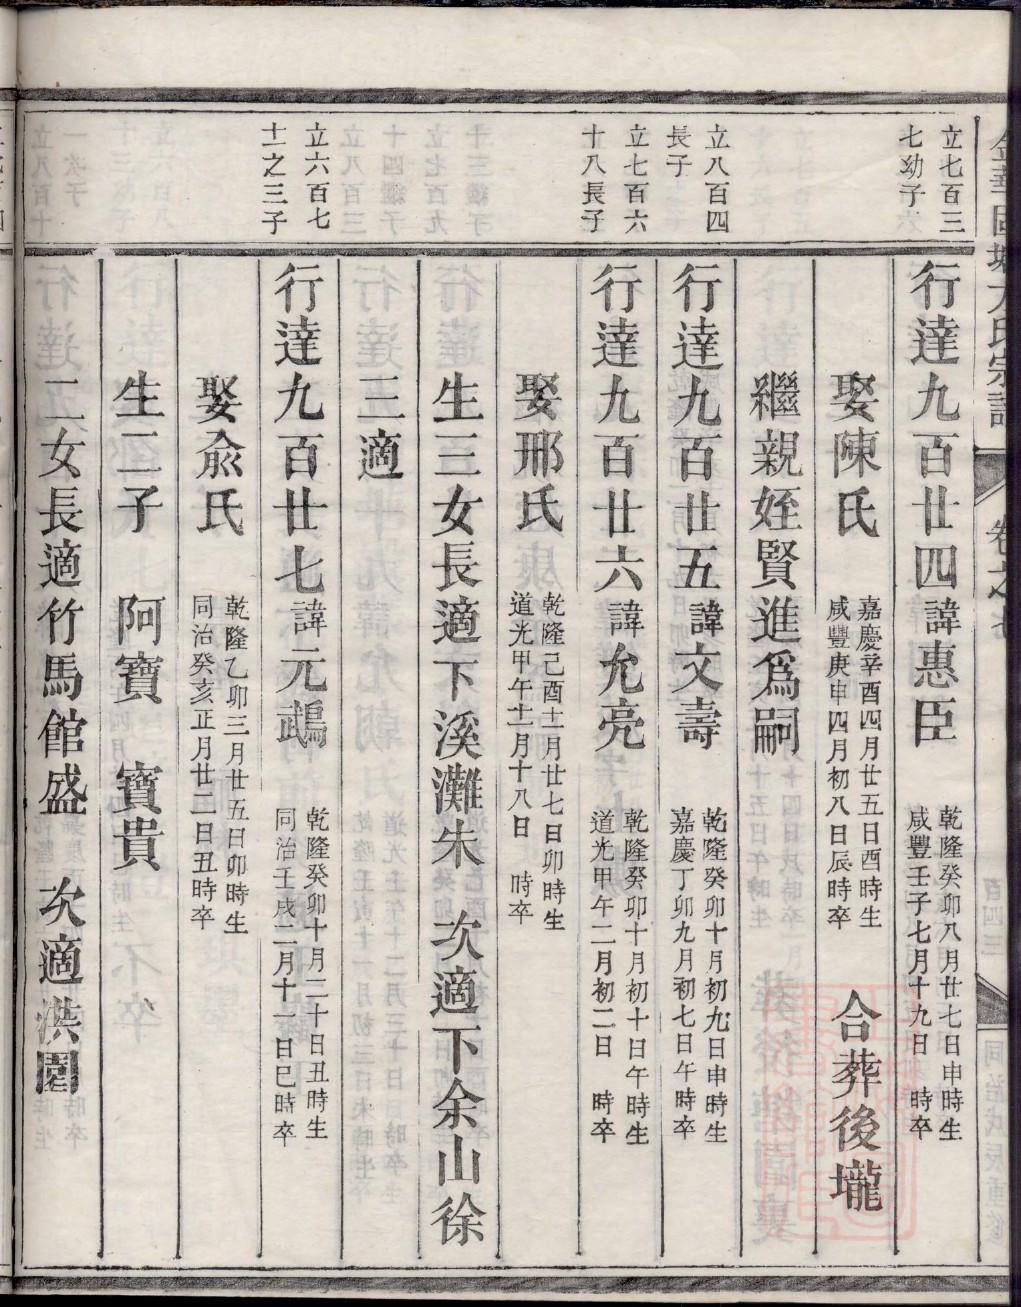 立七百三
七幼子
行達九百廿四諱惠臣
乾隆癸卯八月廿七日申時生
咸豐壬子七月十九日 時卒
娶陳氏
嘉慶辛酉四月廿五日酉時生
咸豐庚申四月初八日辰時卒
合葬後壠
繼親姪賢進爲嗣
立八百四
長子
行達九百廿五諱文壽
乾隆癸卯十月初九日申時生
嘉慶丁卯九月初七日午時卒
立七百六
十八長子
行達九百廿六諱允亮
乾隆癸卯十月初十日午時生
道光甲午二月初二日 時卒
娶邢氏
乾隆己酉十一月廿七日卯時生
道光甲午十一月十八日 時卒
生三女長適下溪灘朱 次適下余山徐
三適
立六百七
十一之三子
行達九百廿七諱元鵡
乾隆癸卯十月二十日丑時生
同治壬戌二月十一日巳時卒
娶兪氏
乾隆乙卯三月廿五日卯時生
同治癸亥正月廿二日丑時卒
生二子 阿寶 寶貴
二女長適竹馬館盛 次適洪園